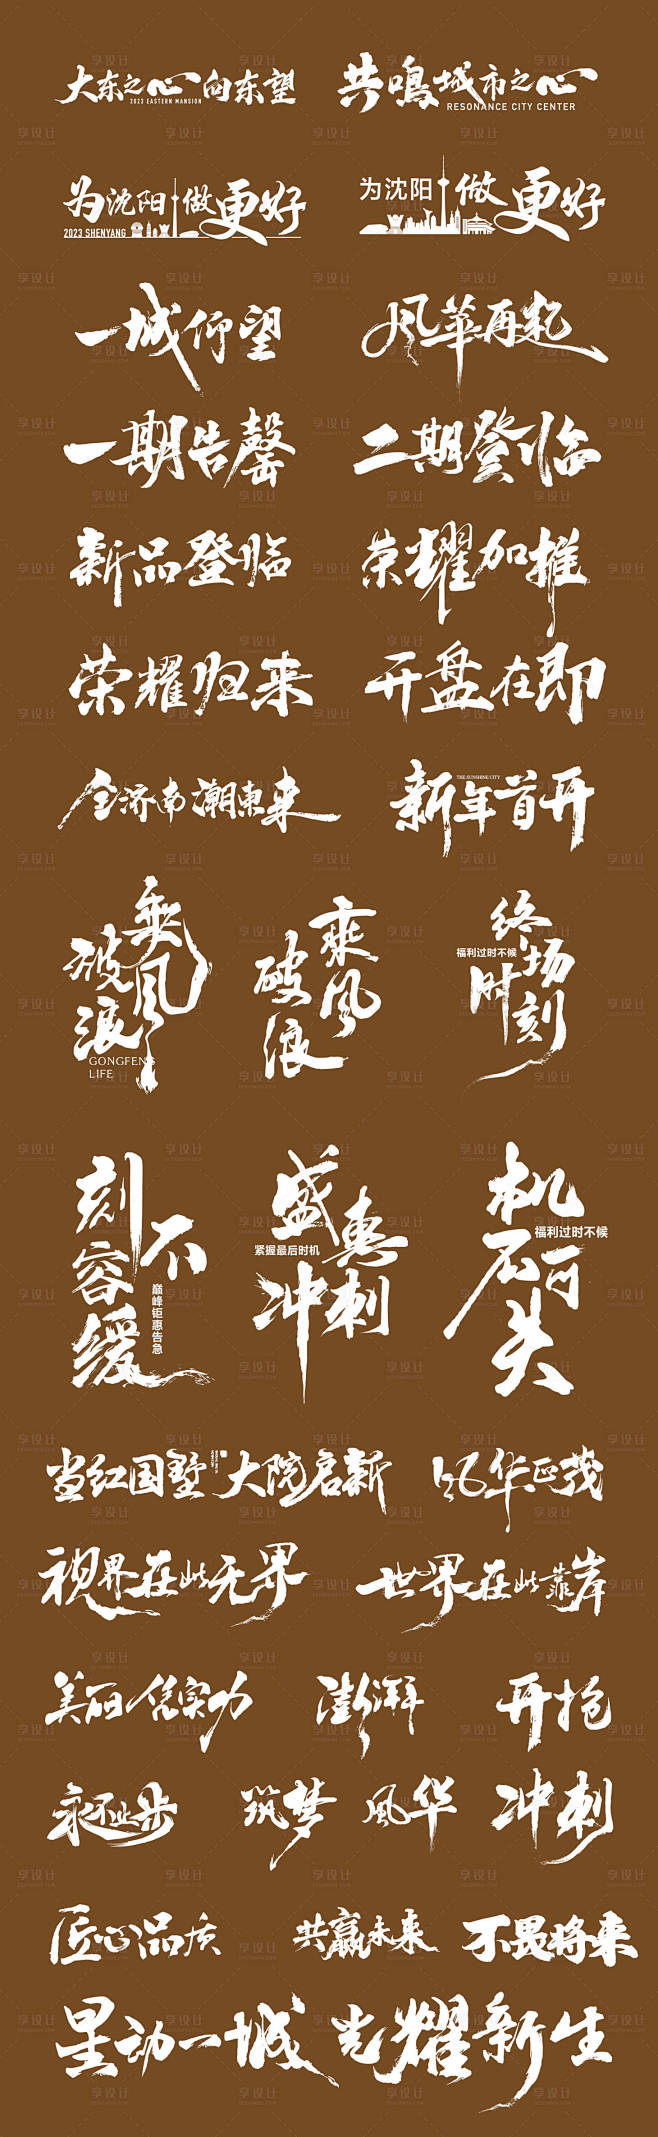 大东之心向东望
2023 EASTERN MANSION
共鸣城市之心
RESONANCE CITY CENTER
为沈阳做更好
2023 SHENYANG
为沈阳做更好
一城仰望
风华再起
一期告罄
二期登临
新品登临
荣耀加推
荣耀归来
开盘在即
全济南潮東来
THE SUNSHINE CITY
新年首开
乘風
破浪
GONGFENG
LIFE
乘風
破浪
终场
福利过时不候
时刻
刻不
容缓
巅峰钜惠告急
盛惠
紧握最后时机
冲刺
机不可失
福利过时不候
当红国墅
大院启新
风华正茂
视界在此无界
世界在此靠岸
美丽凭实力
澎湃
开抢
永不止步
筑梦
風华
冲刺
匠心品质
共赢未来
不畏将来
星动一城 光耀新生
享设计